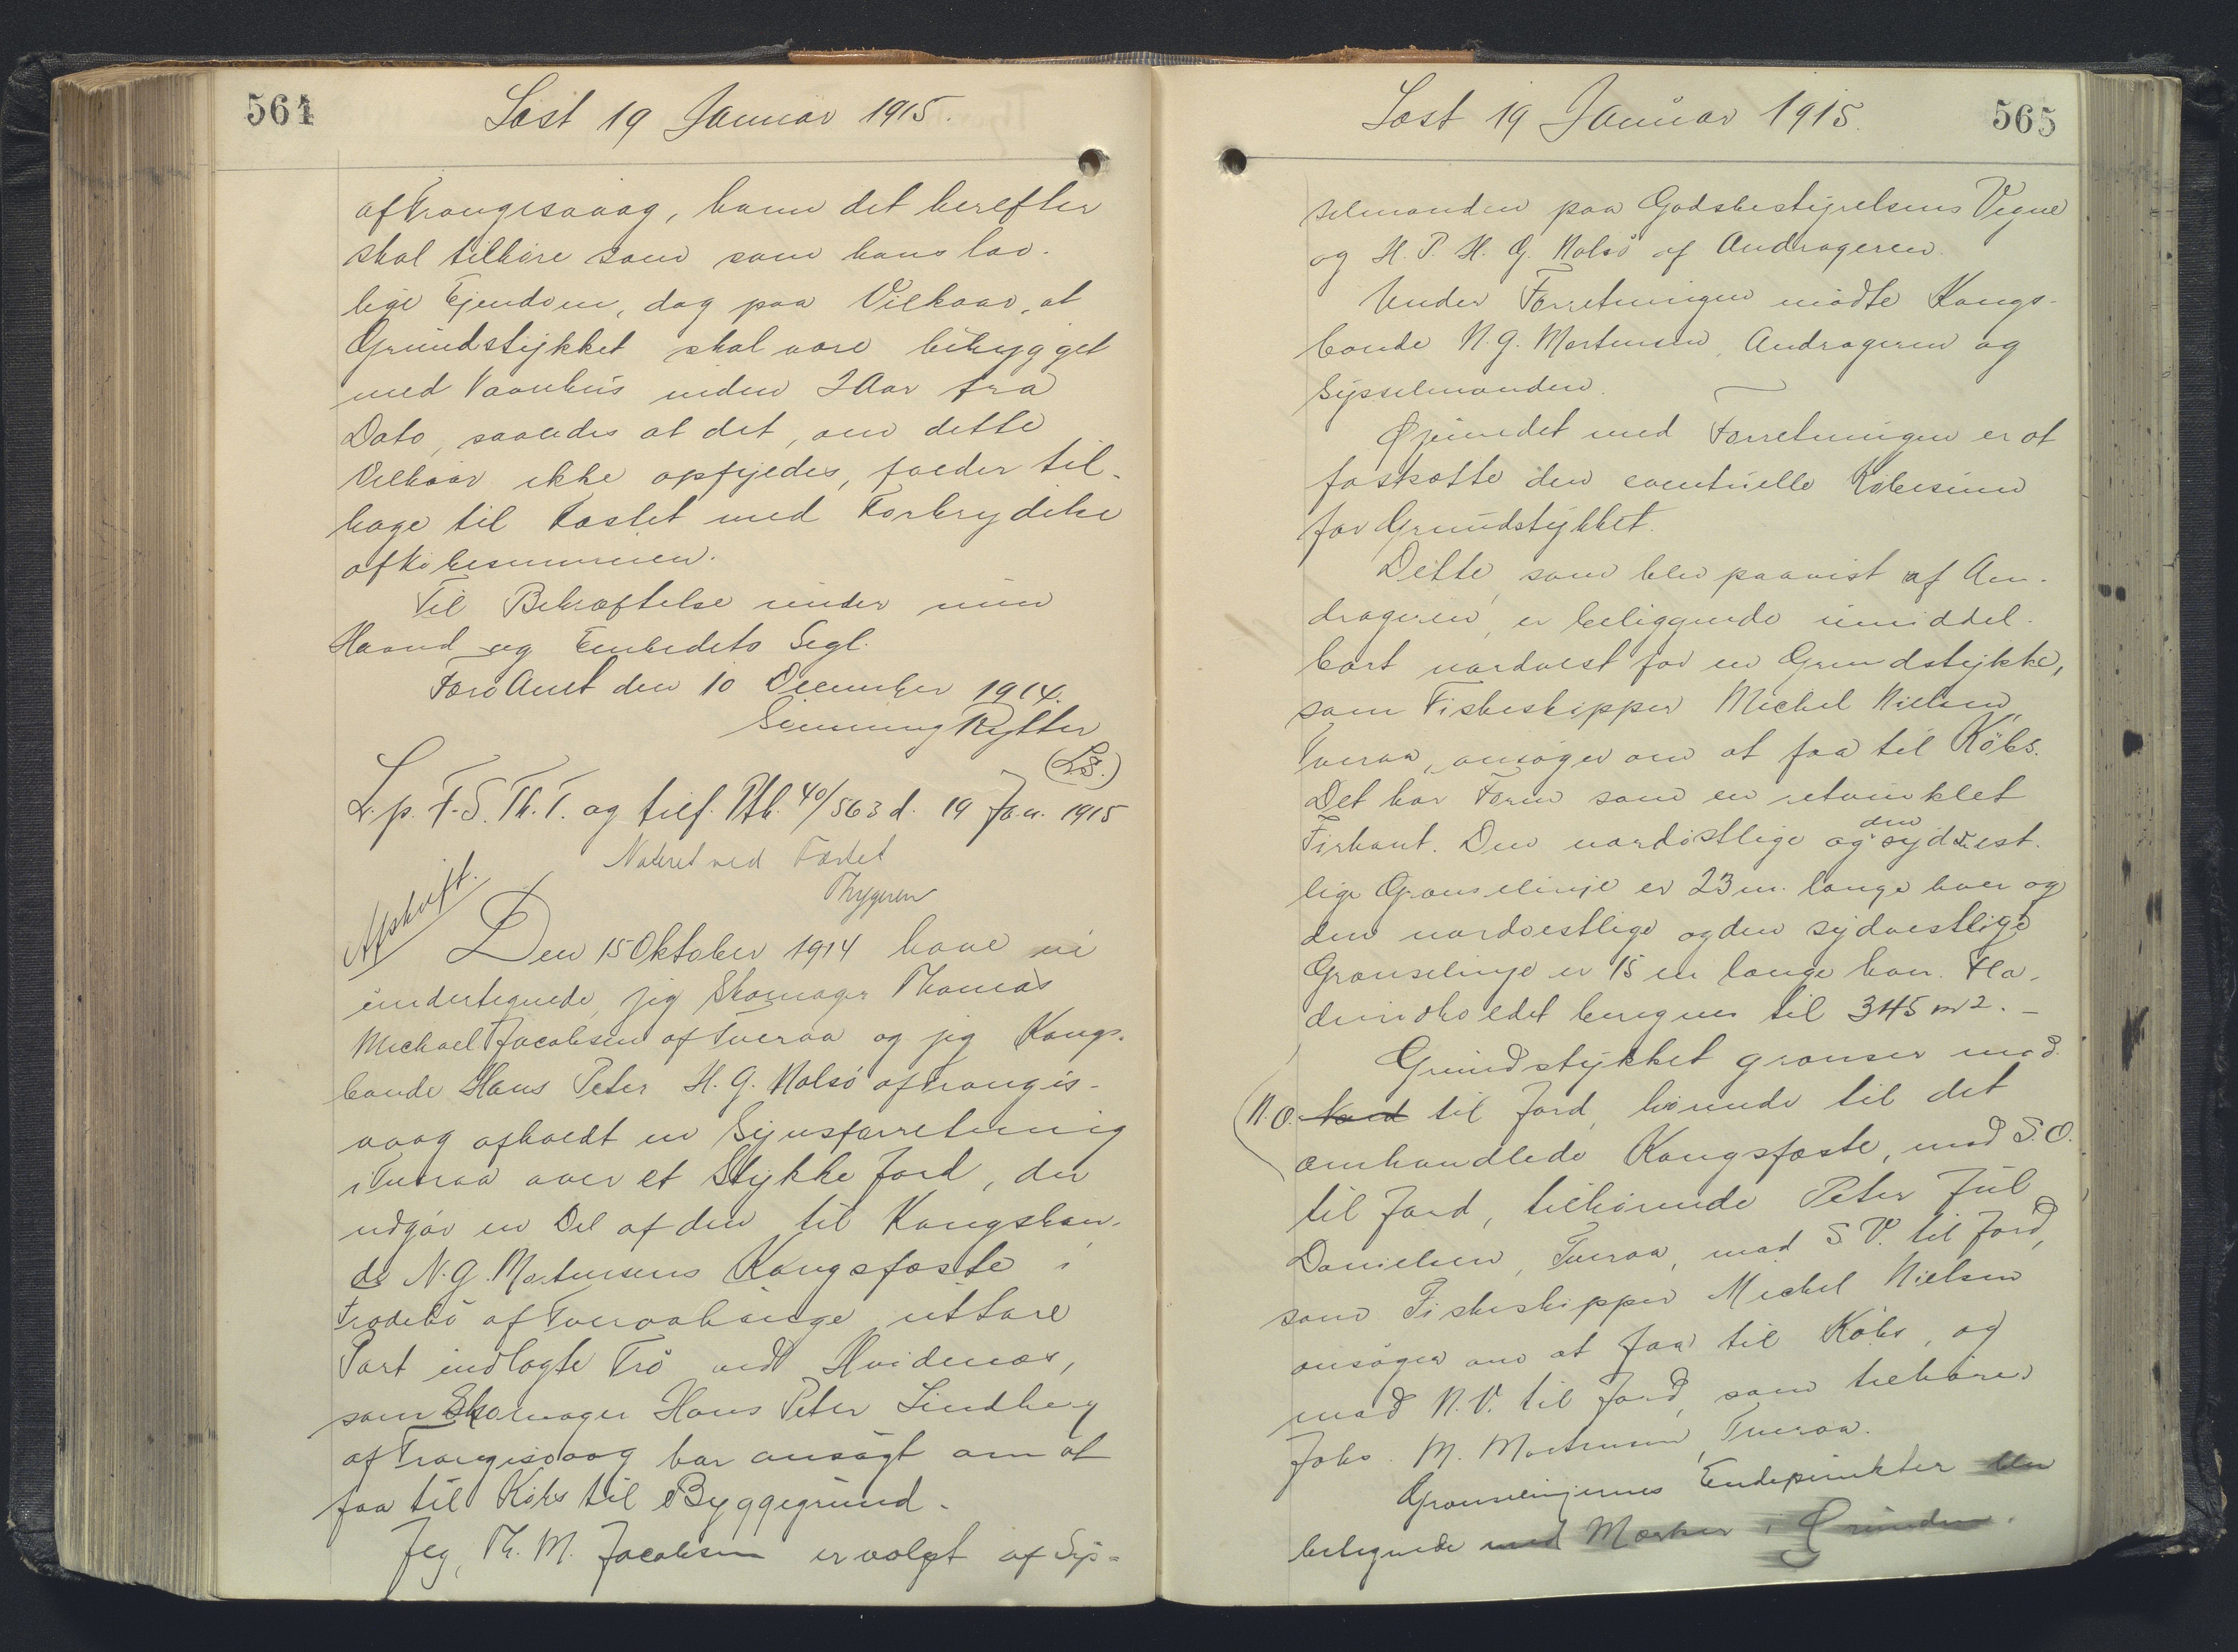 564
Læst 19 Januar 1915.
af Trangisvaag, hvem det herefter
skal tilhøre som som hans lov-
lige Ejendom, dog paa Vilkaar, at
Grundstykket skal være bebygget
med Vaanhus inden 2 Aar fra
Dato, saaledes at det, om dette
Vilkaar ikke opfyldes, falder til-
bage til Fæstet med Forbrydelse
af Købesummen.
Til Bekræftelse under min
Haand og Embedets Segl.
Færø Amt den 10 December 1914.
Svenning Rytter
(L.S.)
L. p. F. S. Th. T. og tilf. Pth. 40/563 d. 19 Jan. 1915
Noteret ved Fæstet
Thygesen
Afskrift.
Den 15 Oktober 1914 have vi
undertegnede, jeg Skomager Thomas
Michael Jacobsen af Tveraa og jeg Kongs-
bonde Hans Peter H. G. Nolsö af Trangis-
vaag afholdt en Synsforretning
i Tveraa over et Stykke Jord, der
udgør en Del af den til Kongsbon-
de N. G. Mortensens Kongsfæste i
Frodebö af Tveraahauge uttare
Part indlagte Trö ved Hvidenæs,
som Skomager Hans Peter Lindberg
af Trangisvaag har ansögt om at
faa til Købs til Byggegrund.
Jeg, Th. M. Jacobsen er valgt af Sys-
565
Læst 19 Januar 1915.
selmanden paa Godsbestyrelsens Vegne
og H. P. H. G. Nolsö af Andrageren.
Under Forretningen mödte Kongs-
bonde N. G. Mortensen, Andrageren og
Sysselmanden.
Øjemedet med Forretningen er at
fastsætte den eventuelle Købesum
for Grundstykket.
Dette, som blev paavist af An-
drageren, er beliggende umiddel-
bart nordvest for en Grundstykke,
som Fiskeskipper Michel Nielsen,
Tveraa, ansöger om at faa til Købs.
Det har Form som en retvinklet
Firkant. Den nordöstlige og den sydvest-
lige Grænselinje er 23 m. lange hver og
den nordvestlige og den sydvestlige
Grænselinje er 15 m lange hver. Fla-
deindholdet beregnes til 345 m2. -
Grundstykket grænser mod
N.O. Nord til Jord, hørende til det
omhandlede Kongsfæste, mod S.O.
til Jord, tilhörende Peter Jul
Danielsen, Tveraa, mod S.V. til Jord,
som Fiskeskipper Michel Nielsen
ansöger om at faa til Købs, og
mod N.V. til Jord, som tilhører
Johs. M. Mortensen, Tveraa.
Grænselinjernes Endepunkter blev
betegnede med Mærker i Grunden.